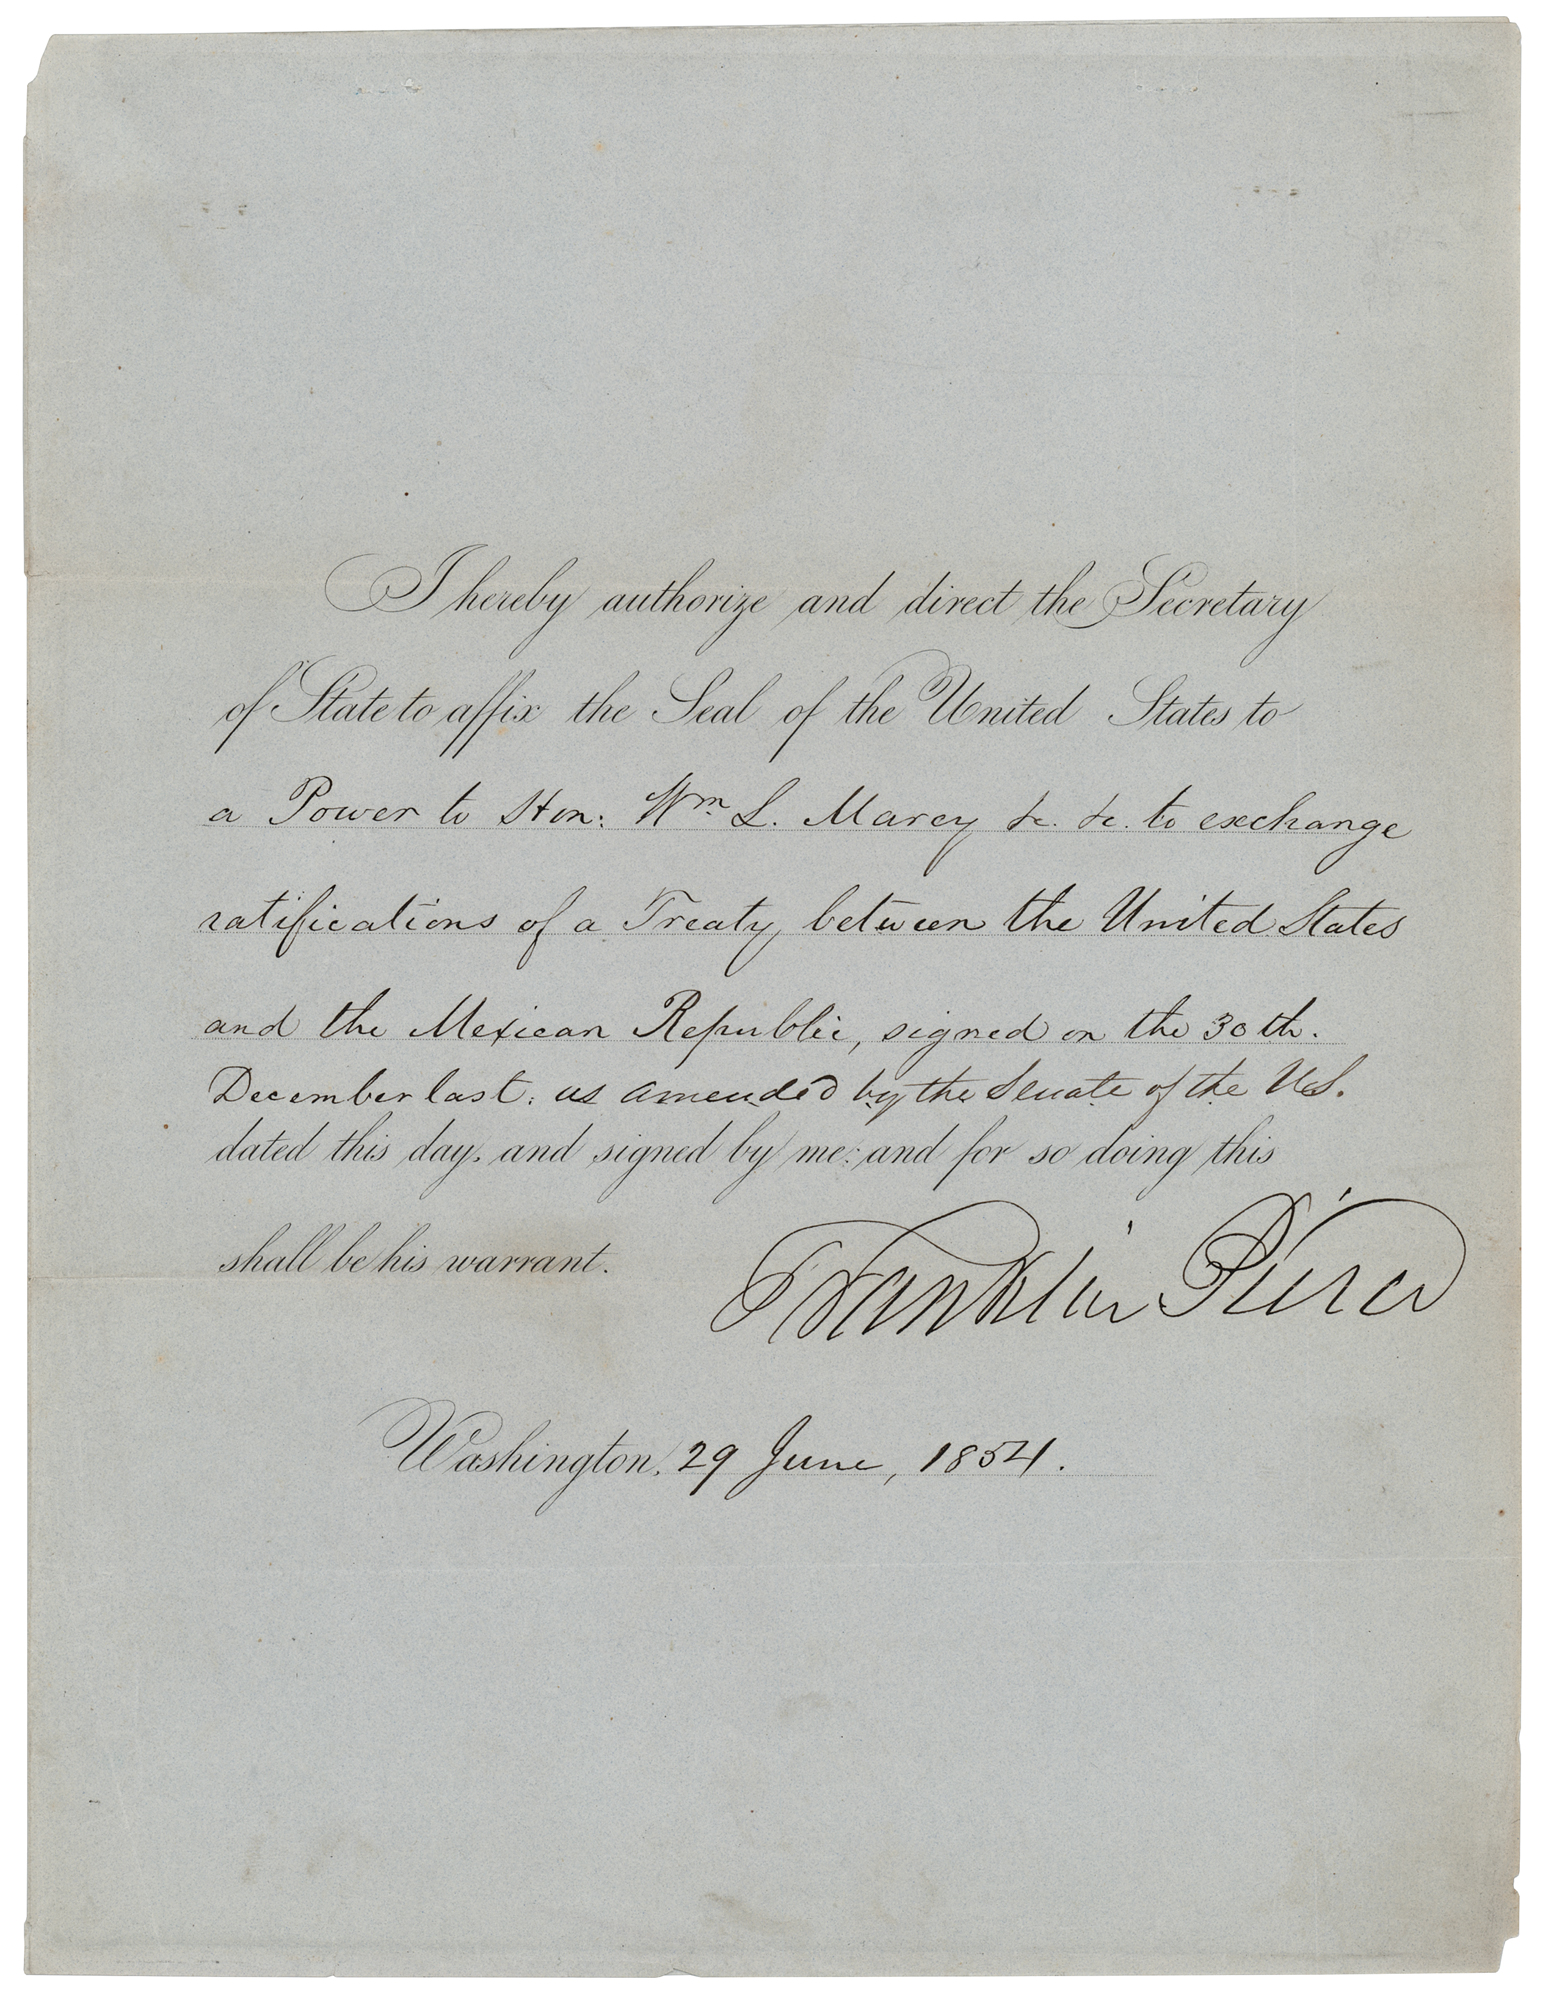 I hereby authorize and direct the Secretary
of State to affix the Seal of the United States to
a Power to Hon: Wm. L. Marcy &c. &c. to exchange
ratifications of a Treaty, between the United States
and the Mexican Republic, signed on the 30th.
December last: as amended by the Senate of the U.S.
dated this day, and signed by me: and for so doing this
shall be his warrant.
Franklin Pierce
Washington, 29 June, 1854.